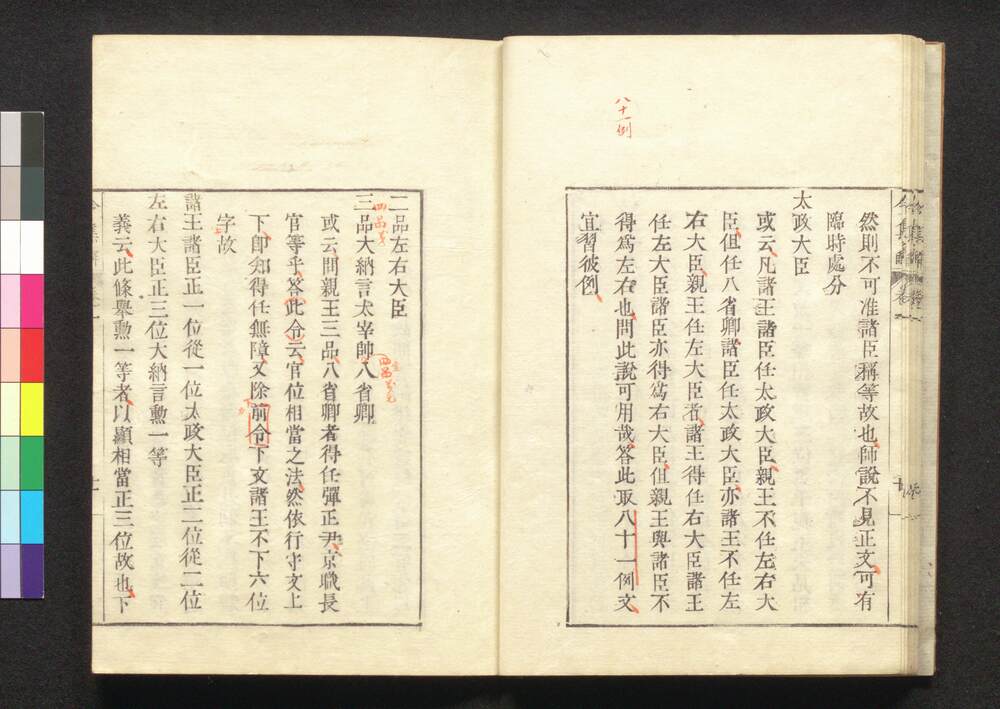 然則不可准諸臣稱等故也師說不見正文可有
臨時處分
太政大臣
或云凡諸王諸臣任太政大臣親王不任左右大
臣但任八省卿諸臣任太政大臣亦諸王不任左
右大臣親王任左大臣者諸王得任右大臣諸王
任左大臣諸臣亦得爲右大臣但親王與諸臣不
得爲左右也問此說可用哉答此取八十一例文
宜習彼例
八十一例
二品左右大臣
三品大納言太宰帥八省卿
四品
或云問親王三品八省卿者得任彈正尹京職長
官等乎答此令云官位相當之法然依行守文上
下卽知得任無障又除前令下文諸王不下六位
字故
諸王諸臣正一位從一位太政大臣正二位從二位
左右大臣正三位大納言勳一等
義云此條舉勳一等者以顯相當正三位故也下